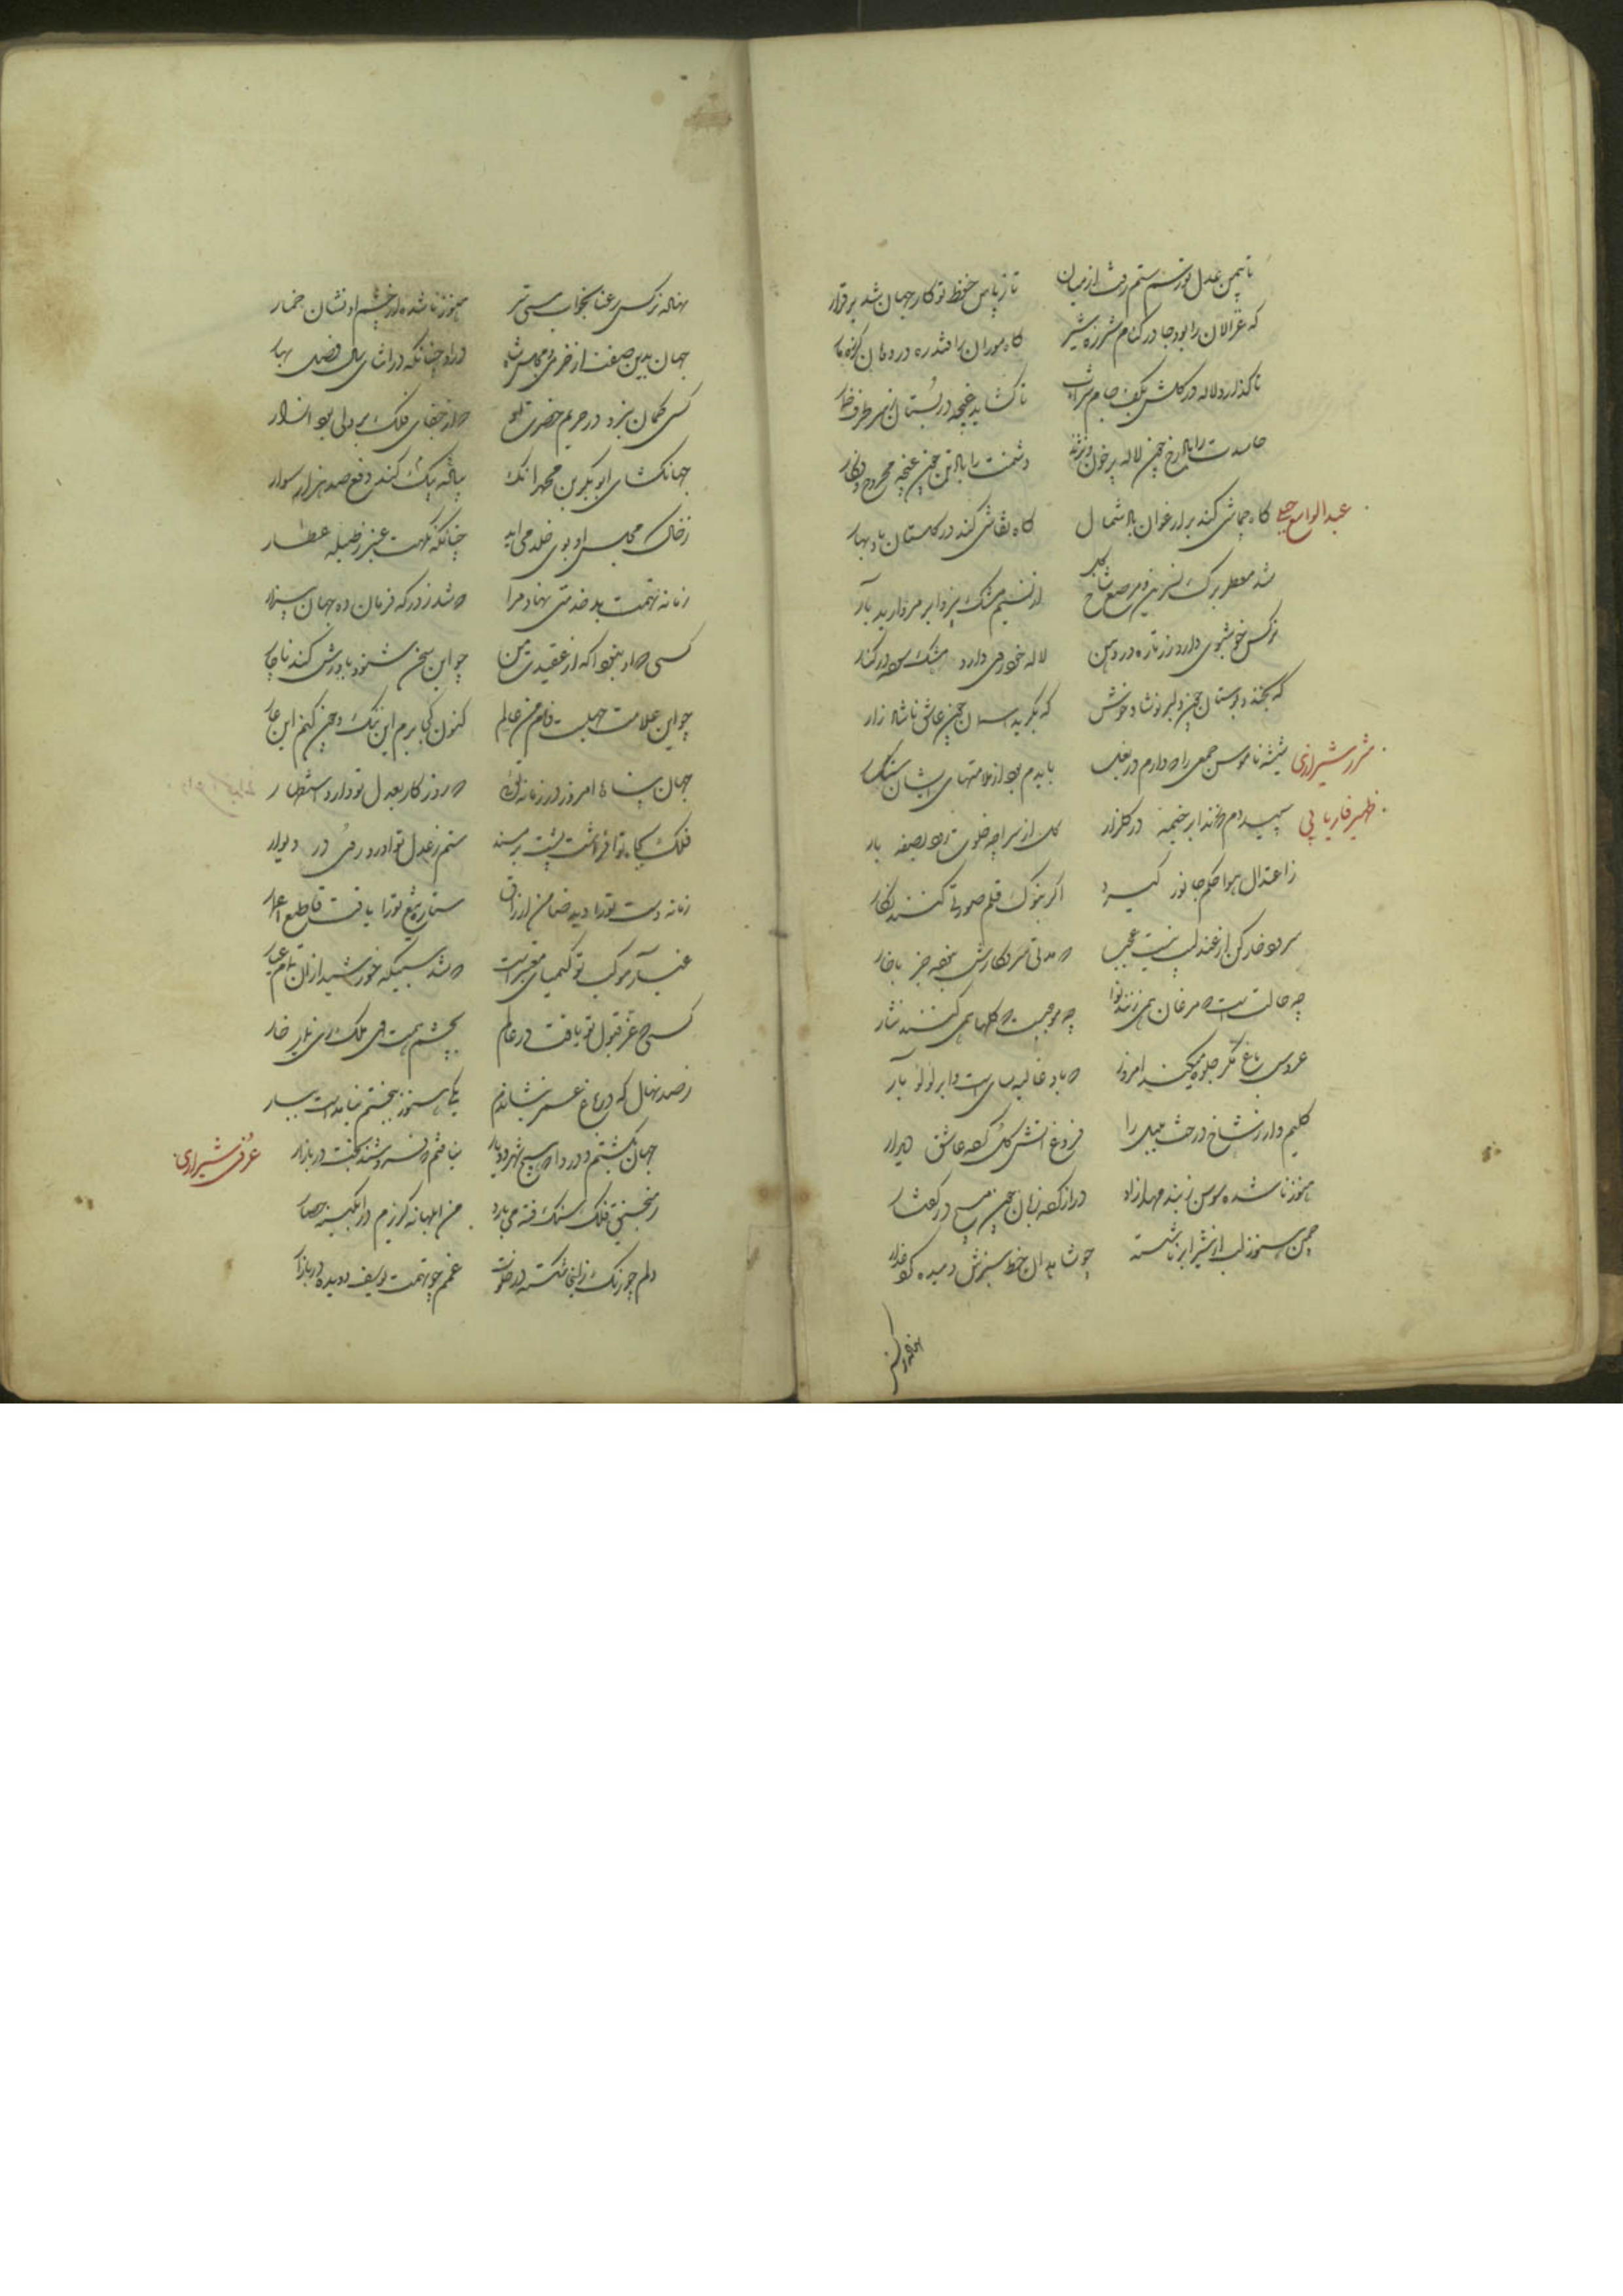 تا بیمن عدل تو رسم ستم رفت از میان تا ز پاس حفظ تو کار جهان شد برقرار
که غزالان را بود جا در کنام شرزه شیر کاه موران را فتد ره در دهان
تا کذارد لاله در کلشن بکف جام شراب تا کشاید غنچه در بستان ز هر طرف
حاسدت را باد رخ چون لاله پر خون دشمنت را باد تن چون غنچه مجروح و فکار
عبدالواسع جبلی کاه جماشی کند بر ارغوان باد شمال کاه نقاشی کند در کلستان باد بهار
شد معطر برک نسرین و مرصع شاخ کل از نسیم مشک بیز و ابر مروارید بار
نرکس خوشبوی دارد زر تازه در دهن لاله خودروی دارد مشک سوده در کنار
که بخندد بوستان چون دلبر نوشاد خوش که بکرید آسمان چون عاشق ناشاد زار
شیرازی شیشه ناموس جمعی را که دارم در بغل بایدم بود از ملامتهای ایشان
ظهیر فاریابی سپیده دم که زند ابر خیمه در کلزار کل از سراچه خلوت رود بصفه بار
ز اعتدال هوا حکم جانور کیرد اکر بنوک قلم صورتی کنند نکار
سرود خارکن از عندلیب نیست عجب که مدتی سر و کارش نبود جز با خار
چه حالتست که مرغان همی زنند نوا چه موجبست که کلها همی کنند نثار
عروس باغ مکر جلوه میکند امروز که باد غالیه سای است و ابر لولو بار
کلیم وار ز شاخ درخت بلبل را فروغ آتش کل کرده عاشق دیدار
هنوز ناشده سوسن ز بند مهد آزاد دراز کرده زبان چون مسیح در کفتار
چمن هنوز لب از شیر ابر ناشسته چو شاهدان خط سبزش دمیده کرد عذار
نهاده نرکس رعنا بخواب مستی سر هنوز ناشده از چشم او نشان خمار
جهان بدین صفت از خرمی و مجلس شاه درو چنانکه در اثنای سال فصل بهار
کسی کمان نبرد در حریم حضرت تو که از جفای فلک بر دلی بود آزار
جهانکشای ابوبکر بن محمد آنک پیاده یک کند دفع صد هزار سوار
ز خاک مجلس او بوی خلد می آید چنانکه نکهت عنبر ز طبله عطار
زمانه تهمت بد خدمتی نهاد مرا که شد ز درکه فرمان ده جهان بیزار
کسی که او بخدا که از عقیدت من چو این سخن شنود باورش کند ناچار
چو این علامت جهلست و من عالم کنون کجا برم این ننک و چون کنم این عار
جهان پناها امروز در زمانه توئی که روزکار بعدل تو دارد استظهار
زمانه دست تو را دید ضامن ارزاق ستاره تیغ تو را یافت قاطع اعمار
غبار موکب تو کیمیای معتبر است که شد سبیکه خورشید از آن تمام عیار
کسی که عز قبول تو یافت در عالم بچشم همت وی ملک وی نماید خار
ز صد نهال که در باغ عمر بنشاندم یکی هنوز ببختم نیامده است ببار
جهان بکشتم و دردا که هیچ شهر و دیار نیافتم که فروشند بخت در بازار عرفی شیرازی
ز منجنیق فلک سنک فتنه می بارد من ابلهانه کریزم در آبکینه حصار
دلم چو رنک زلیخا شکسته در خلوت غمم چو تهمت یوسف دویده در بازار